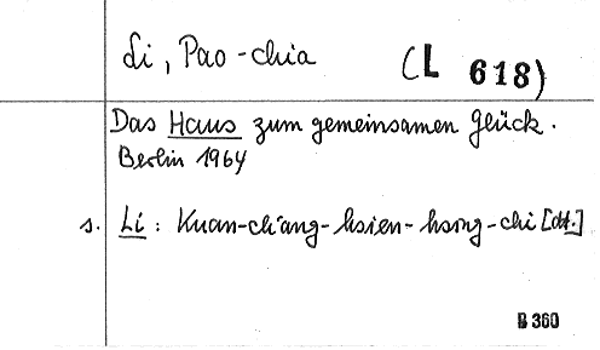 Li, Pao-chia (L 618)
Das Haus zum gemeinsamen Glück.
Berlin 1964
s. Li: Kuan-ch'ang-hsien-hsing-chi [dt.]
B 360